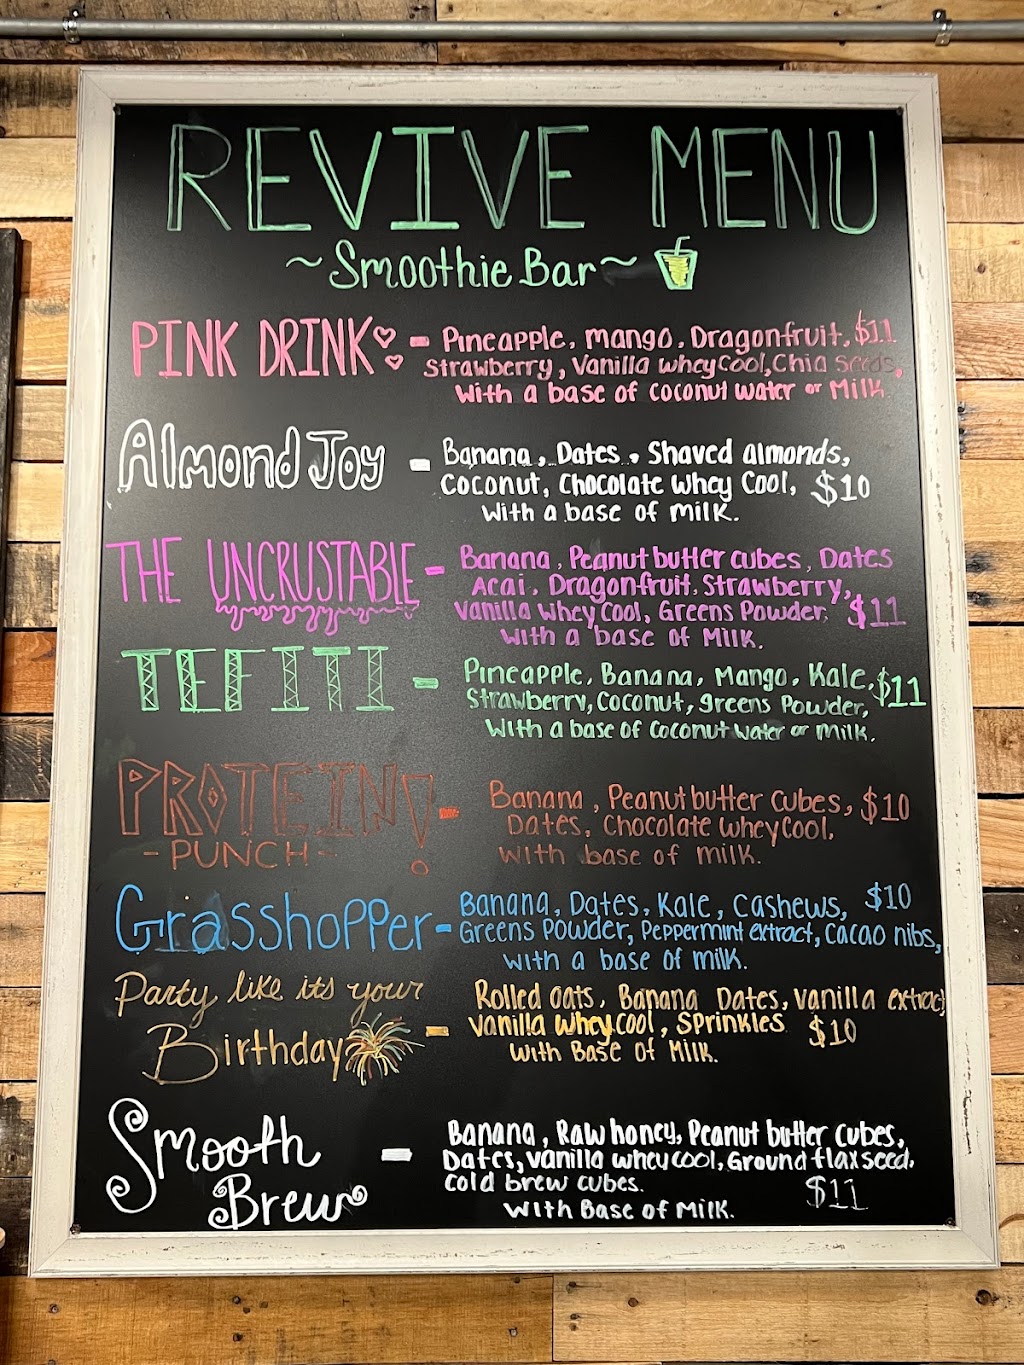 REVIVE MENU
~Smoothie Bar~
PINK DRINK - Pineapple, mango, Dragonfruit, $11
Strawberry, Vanilla Whey Cool, Chia Seeds,
With a base of coconut water or Milk
Almond Joy - Banana, Dates, Shaved almonds,
Coconut, Chocolate Whey Cool, $10
With a base of milk.
THE UNCRUSTABLE - Banana, Peanut butter cubes, Dates
Acai, Dragonfruit, Strawberry,
Vanilla Whey Cool, Greens Powder, $11
With a base of Milk.
TEFITI - Pineapple, Banana, Mango, Kale, $11
Strawberry, Coconut, greens Powder,
With a base of Coconut water or milk.
PROTEIN! - Banana, Peanut butter Cubes, $10
-PUNCH- Dates, Chocolate Whey Cool,
With base of milk.
Grasshopper - Banana, Dates, Kale, Cashews, $10
Greens Powder, Peppermint extract, Cacao nibs,
with a base of milk.
Party like its your Rolled Oats, Banana Dates, vanilla extract,
Birthday - Vanilla Whey Cool, Sprinkles $10
With Base of Milk.
Smooth Brew - Banana, Raw honey, Peanut butter cubes,
Dates, vanilla whey cool, Ground flaxseed,
Cold brew cubes. $11
With Base of Milk.